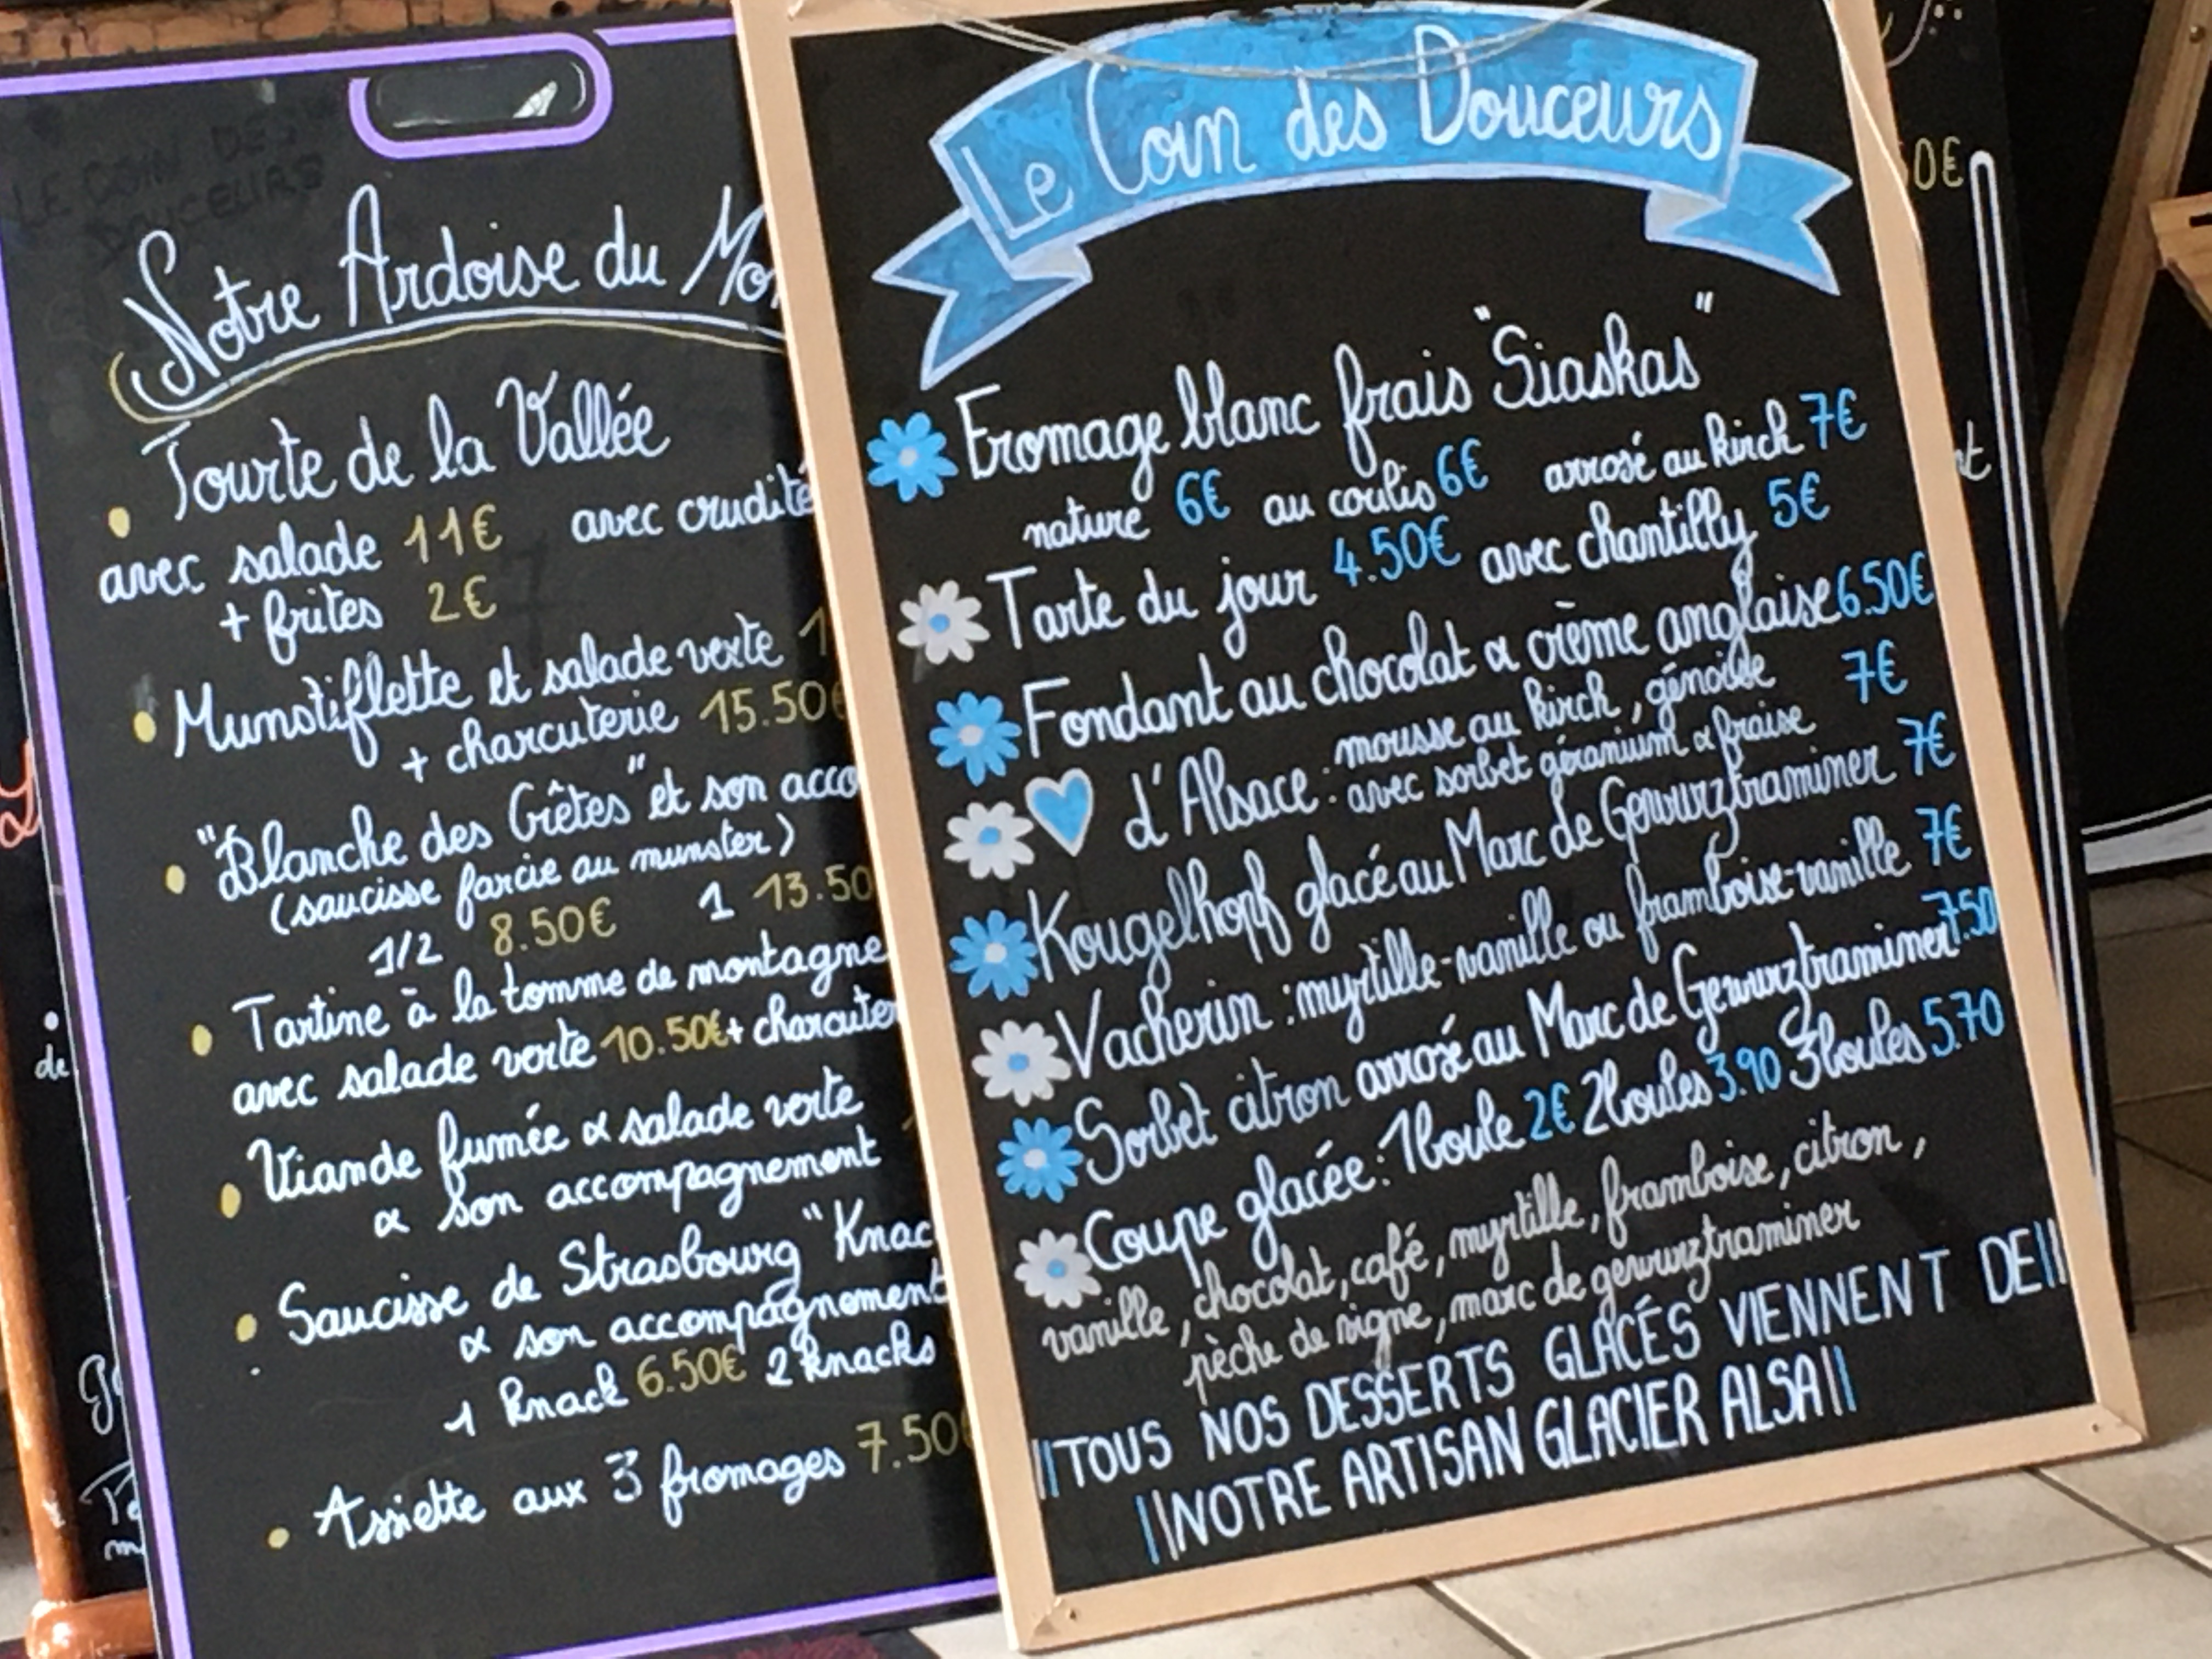 LE COIN DES
DOUCEURS
Notre Ardoise du
Tourte de la Vallée
avec salade 11€ avec crudité
+ frites 2€
Munstiflette et salade verte
+ charcuterie 15.50€
"Blanche des Crêtes" et son acco
(saucisse farcie au munster)
1/2 8.50€ 1 13.50
Tartine à la tomme de montagne
avec salade verte 10.50€ + charcuter
Viande fumée & salade verte
& son accompagnement
Saucisse de Strasbourg "Knac
& son accompagnement
1 knack 6.50€ 2 knacks
Assiette aux 3 fromages 7.50€
Le Coin des Douceurs
Fromage blanc frais "Siaskas"
nature 6€ au coulis 6€ arrosé au kirch 7€
Tarte du jour 4.50€ avec chantilly 5€
Fondant au chocolat & crème anglaise 6.50€
♥ d'Alsace: mousse au kirch, génoise 7€
avec sorbet géranium & fraise
Kougelhopf glacé au Marc de Gewurztraminer 7€
Vacherin: myrtille-vanille ou framboise-vanille 7€
Sorbet citron arrosé au Marc de Gewurztraminer 7.50
Coupe glacée: 1 boule 2€ 2 boules 3.90 3 boules 5.70
vanille, chocolat, café, myrtille, framboise, citron,
pèche de vigne, marc de gewurztraminer
TOUS NOS DESSERTS GLACÉS VIENNENT DE
NOTRE ARTISAN GLACIER ALSA